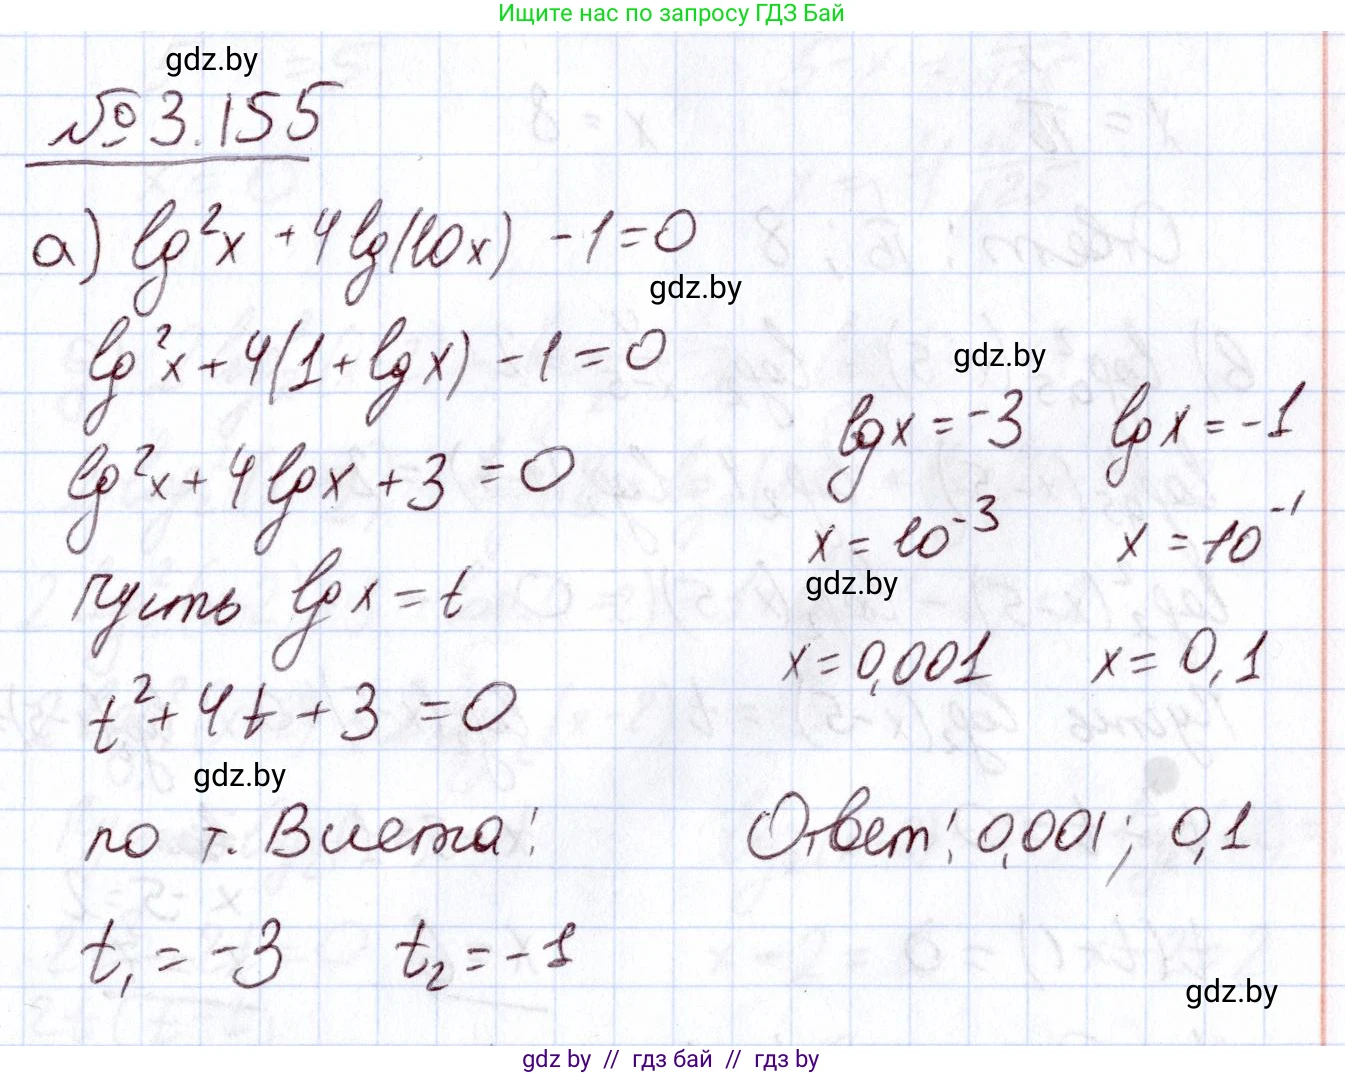 Ищите нас по запросу ГДЗ Бай
gdz.by
№ 3.155
а) lg²x + 4 lg(10x) - 1 = 0
gdz.by
lg²x + 4(1 + lg x) - 1 = 0
lg²x + 4 lg x + 3 = 0
пусть lg x = t
t² + 4t + 3 = 0
gdz.by
по т. Виета:
t₁ = -3 t₂ = -1
gdz.by
lg x = -3 lg x = -1
x = 10⁻³ x = 10⁻¹
gdz.by
x = 0,001 x = 0,1
Ответ: 0,001; 0,1
gdz.by
gdz by // гдз бай // гдз by